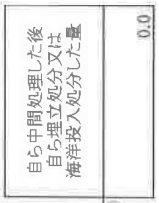 自ら中間処理した後
自ら埋立処分又は
海洋投入処分した量
0.0